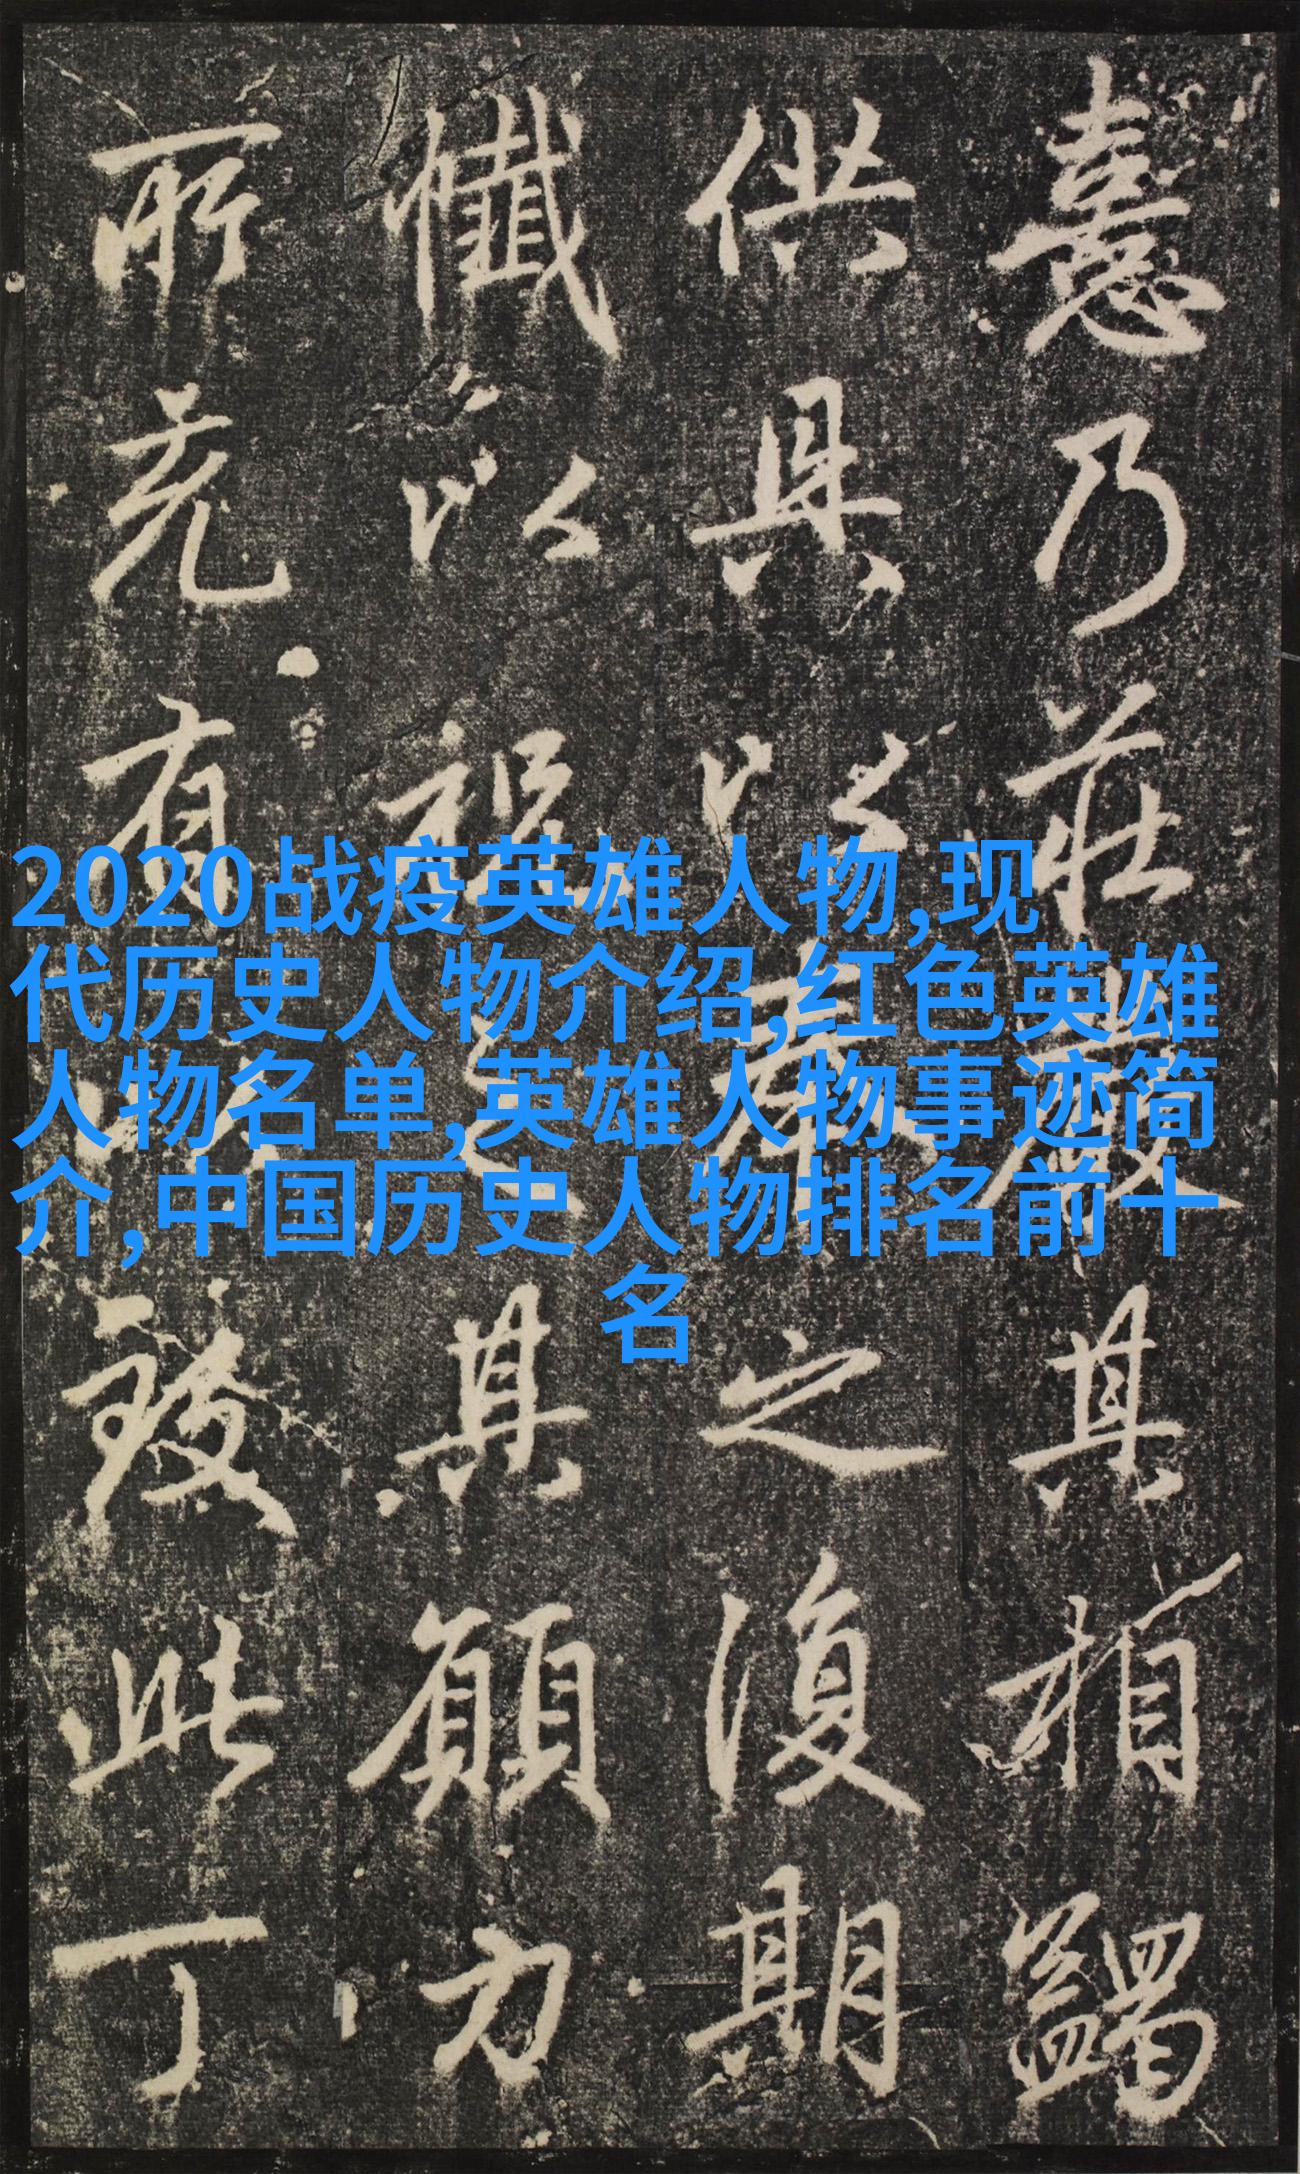 憙乃莊嚴其相蠲
供具以奉之復期
懺以祝之其願方
所有以致此丁
2020战疫英雄人物,现
代历史人物介绍,红色英雄
人物名单,英雄人物事迹简
介,中国历史人物排名前十
名